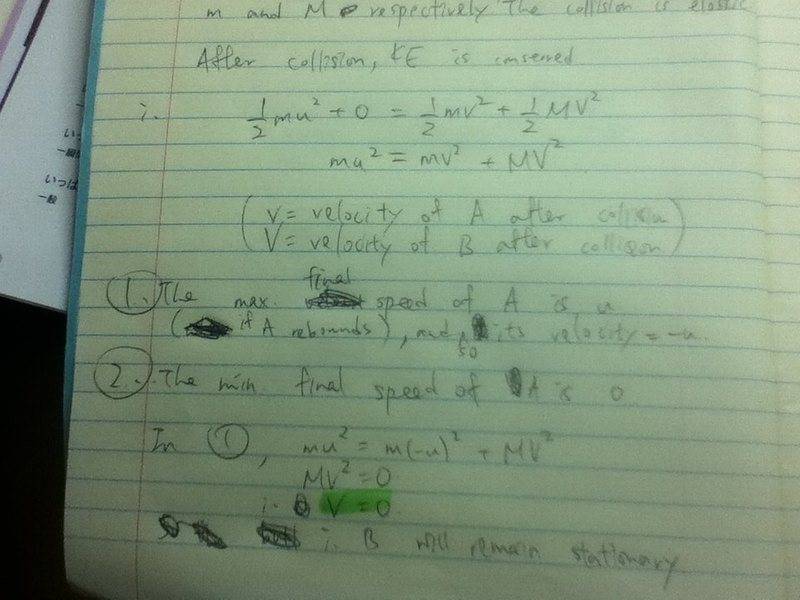 m and M respectively The collision is elastic
After collision, KE is conserved
∴ ½mu² + 0 = ½mv² + ½MV²
mu² = mv² + MV²
(v = velocity of A after collision
V = velocity of B after collision)
1. The max. final speed of A is u
(if A rebounds), and so its velocity = -u.
2. The min final speed of A is 0
In ①, mu² = m(-u)² + MV²
MV² = 0
∴ V = 0
∴ B will remain stationary
いっぱ